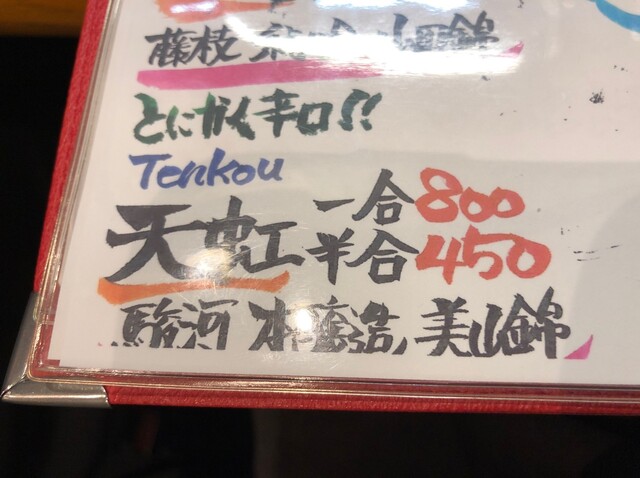 藤枝 純米吟 山田錦
とにかく辛口!!
Tenkou
天虹 一合800
半合450
駿河 本醸造 美山錦